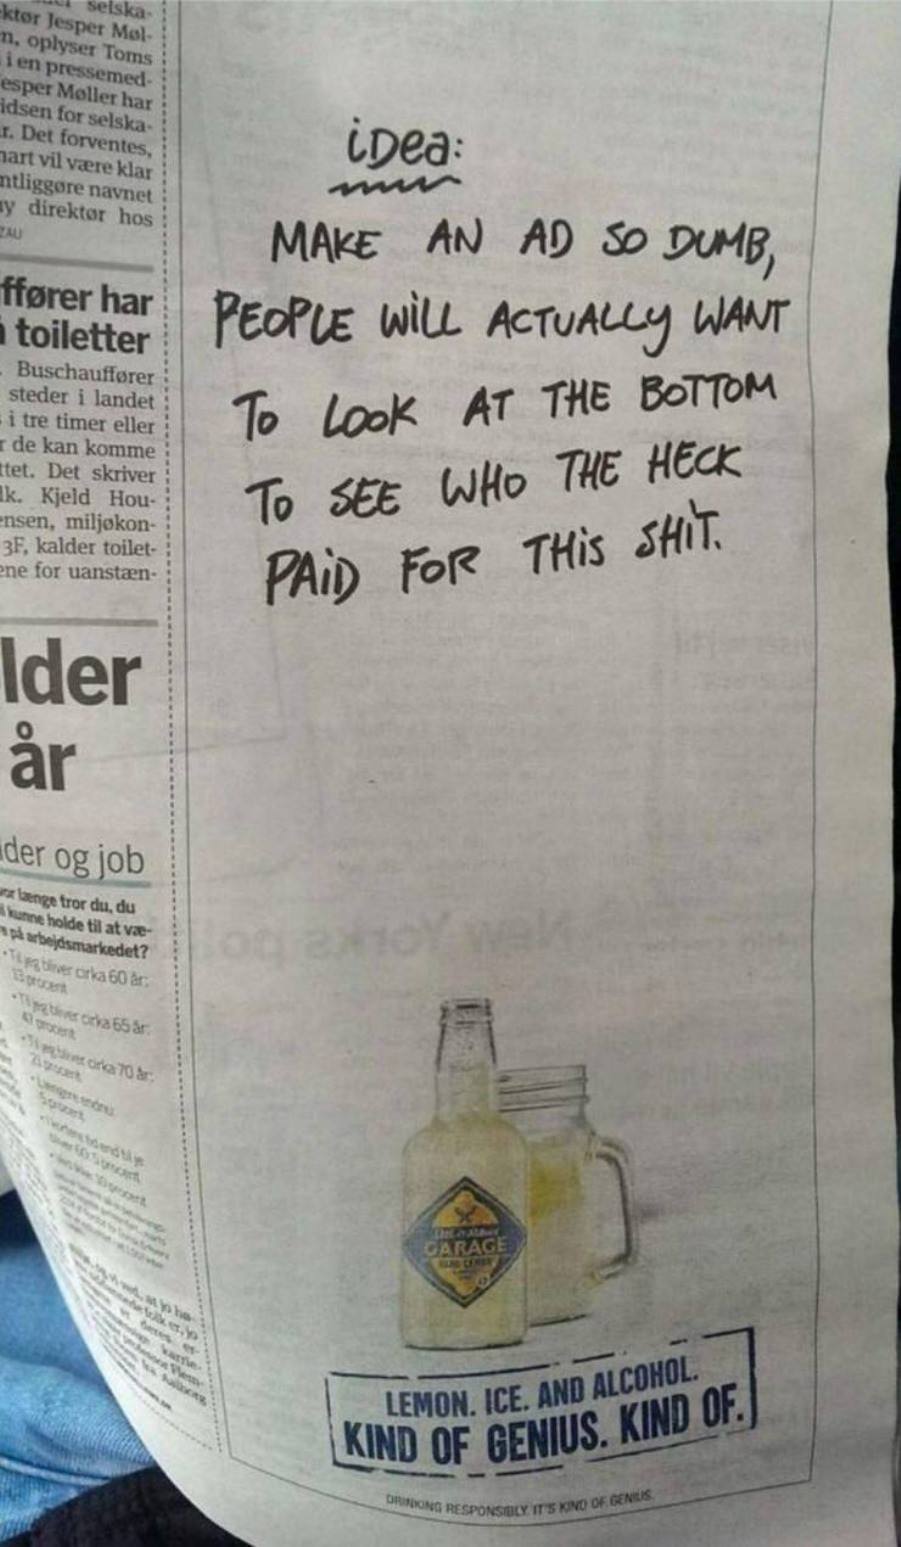 selska-
ktør Jesper Møl-
n, oplyser Toms
i en pressemed-
esper Møller har
idsen for selska-
r. Det forventes,
nart vil være klar
ntliggøre navnet
ny direktør hos
ZAU
ffører har
toiletter
Buschauffører
steder i landet
i tre timer eller
r de kan komme
ttet. Det skriver
lk. Kjeld Hou-
ensen, miljøkon-
3F, kalder toilet-
ene for uanstæn-
lder
år
lder og job
vor længe tror du, du
kunne holde til at væ-
på arbejdsmarkedet?
• Til jeg bliver cirka 60 år:
13 procent
• Til jeg bliver cirka 65 år:
procent
• Til jeg bliver cirka 70 år:
21 procent
• Længere endnu:
5 procent
iDea:
MAKE AN AD SO DUMB,
PEOPLE WiLL ACTUALLY WANT
To LOOK AT THE BOTTOM
To SEE WHO THE HECK
PAiD FOR THiS SHiT.
GARAGE
LEMON. ICE. AND ALCOHOL.
KIND OF GENIUS. KIND OF.
DRINKING RESPONSIBLY. IT'S KIND OF GENIUS.